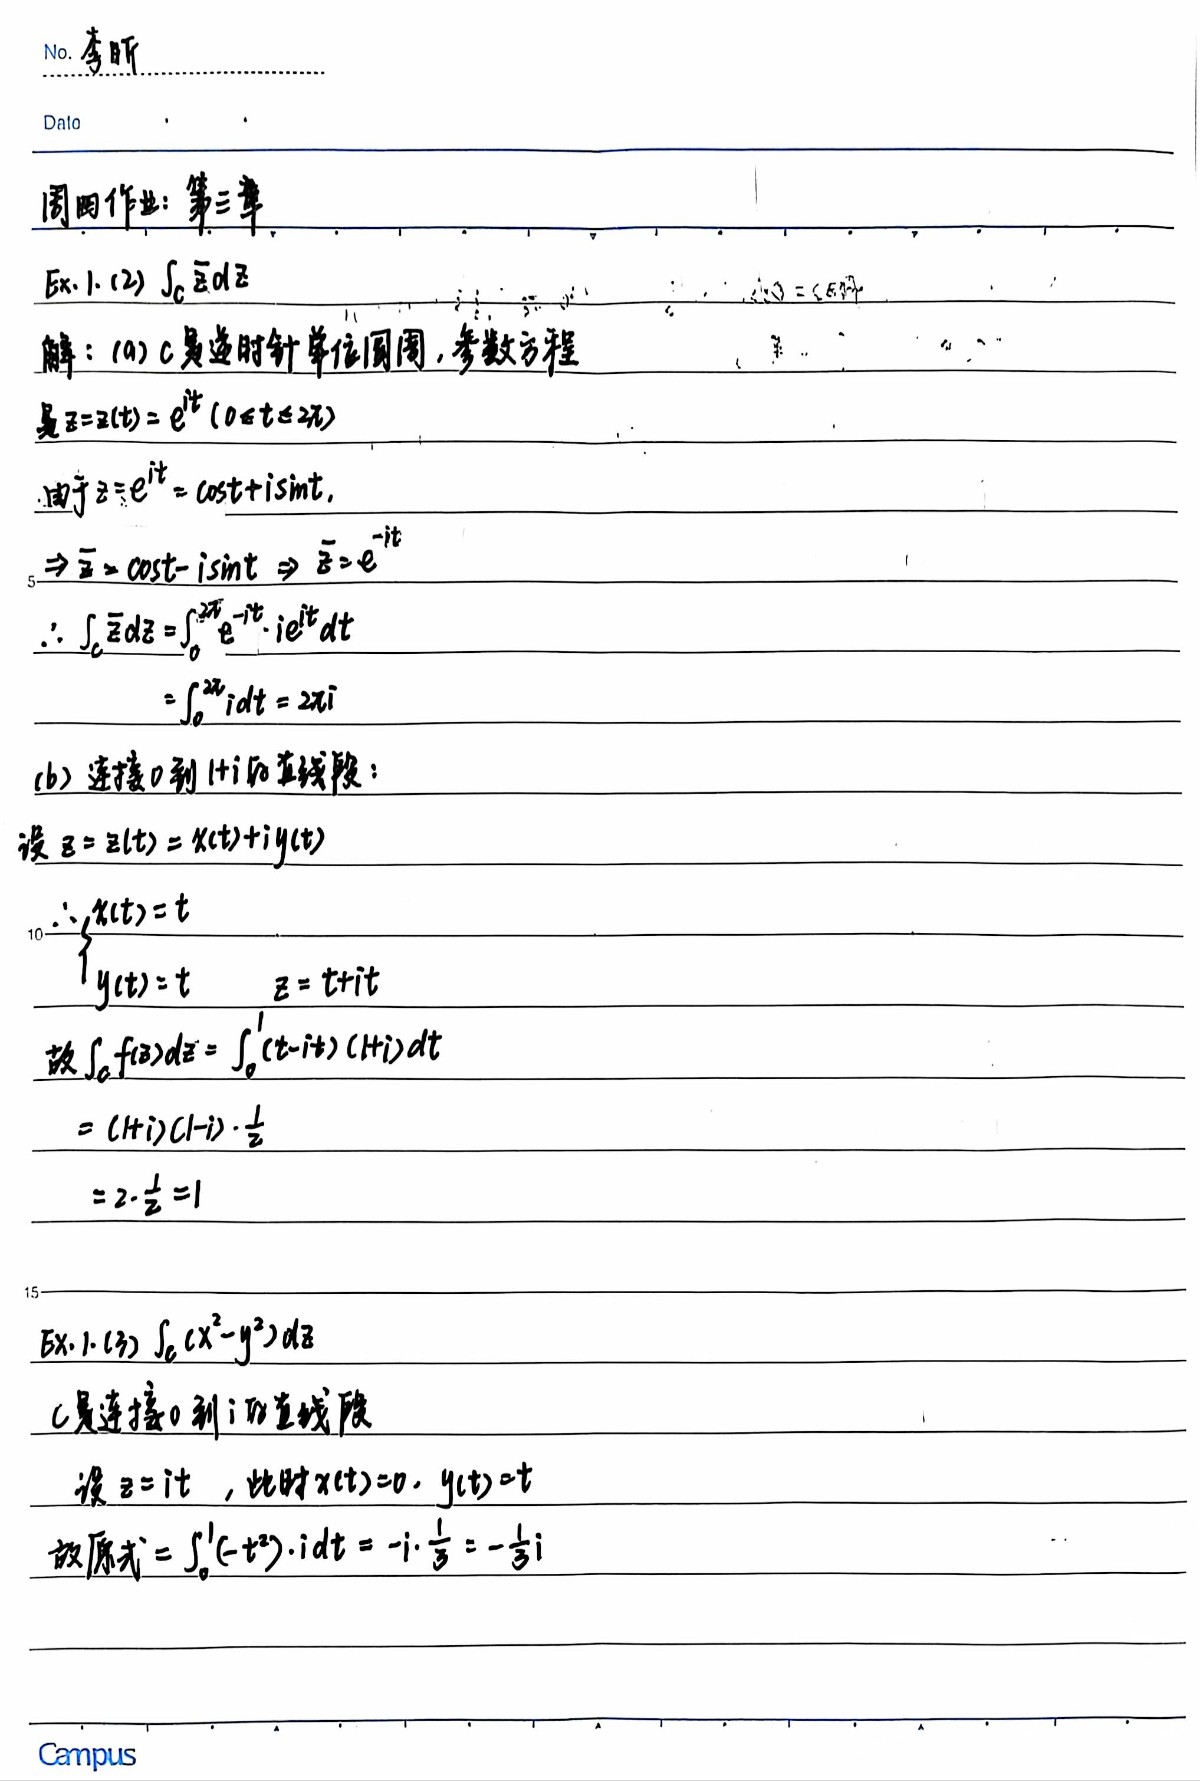 No. 李昕
Date
周四作业：第三章
Ex.1.(2) ∫_C z̄dz
解：(a) C是逆时针单位圆周，参数方程
是z=z(t)=e^{it} (0≤t≤2π)
由于z=e^{it}=cost+isint,
5
⇒ z̄=cost-isint ⇒ z̄=e^{-it}
∴ ∫_C z̄dz=∫_0^{2π} e^{-it}·ie^{it}dt
=∫_0^{2π} idt=2πi
(b) 连接0到1+i的直线段：
设 z=z(t)=x(t)+iy(t)
10
∴ { x(t)=t
y(t)=t z=t+it
故∫_C f(z)dz=∫_0^1 (t-it)(1+i)dt
=(1+i)(1-i)·1/2
=2·1/2=1
15
Ex.1.(3) ∫_C (x²-y²)dz
C是连接0到i的直线段
设 z=it ，此时x(t)=0. y(t)=t
故原式=∫_0^1 (-t²)·idt=-i·1/3=-1/3i
Campus